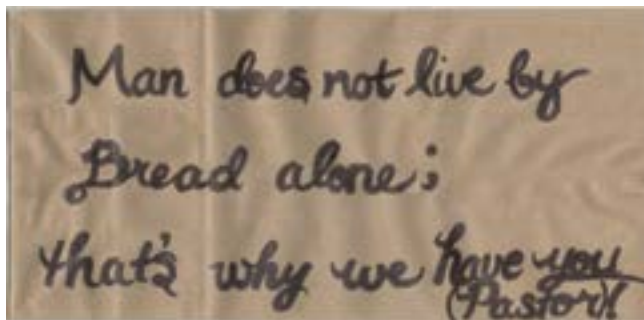 Man does not live by
Bread alone;
that's why we have you
(Pastor)!